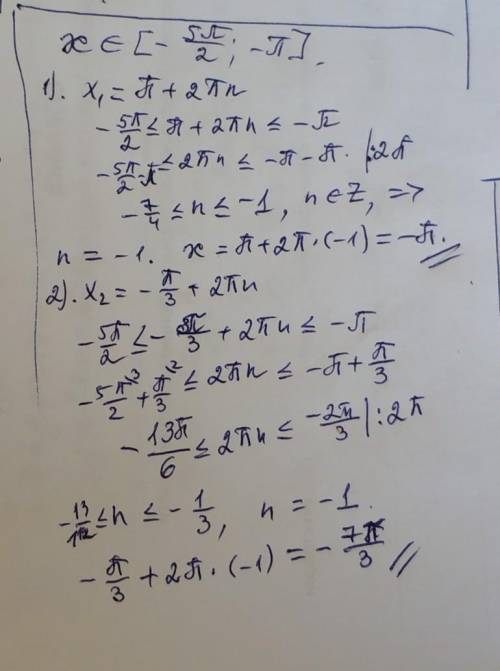 x ∈ [- 5π/2 ; -π].
1). x₁ = π + 2πn
- 5π/2 ≤ π + 2πn ≤ -π
- 5π/2 - π ≤ 2πn ≤ -π - π. |:2π
- 7/4 ≤ n ≤ -1, n ∈ Z, =>
n = -1. x = π + 2π·(-1) = -π.
2). x₂ = - π/3 + 2πn
- 5π/2 ≤ - π/3 + 2πn ≤ -π
- 5π/2 ³ + π/3 ² ≤ 2πn ≤ -π + π/3
- 13π/6 ≤ 2πn ≤ -2π/3 |:2π
- 13/12 ≤ n ≤ - 1/3, n = -1.
- π/3 + 2π·(-1) = - 7π/3